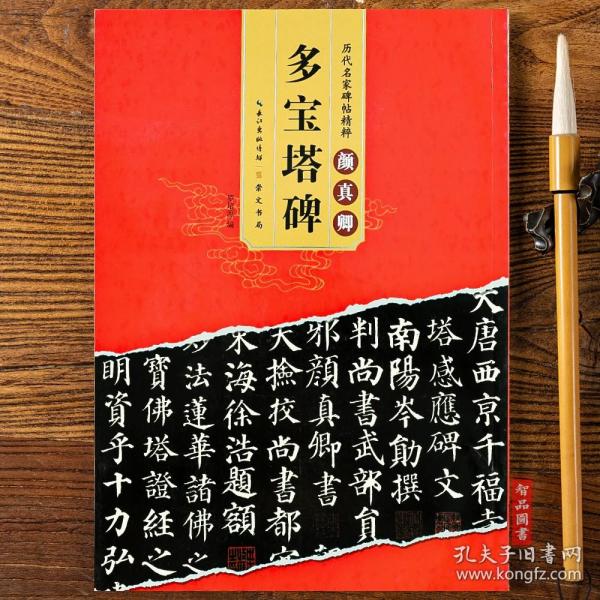 历代名家碑帖精粹
多宝塔碑
颜真卿
长江出版传媒
崇文书局
大唐西京千福寺
塔感應碑文
南陽岑勛撰
判尚書武部員
邪顔真卿書
大撿挍尚書都官
朱海徐浩題額
妙法蓮華諸佛之
寶佛塔證經之
明資乎十力弘
智品圖書
孔夫子旧书网
www.kongfz.com